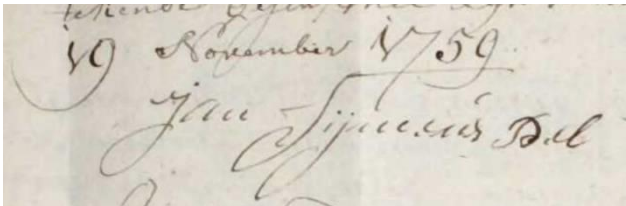 19 November 1759
Jan Sijmens Bel